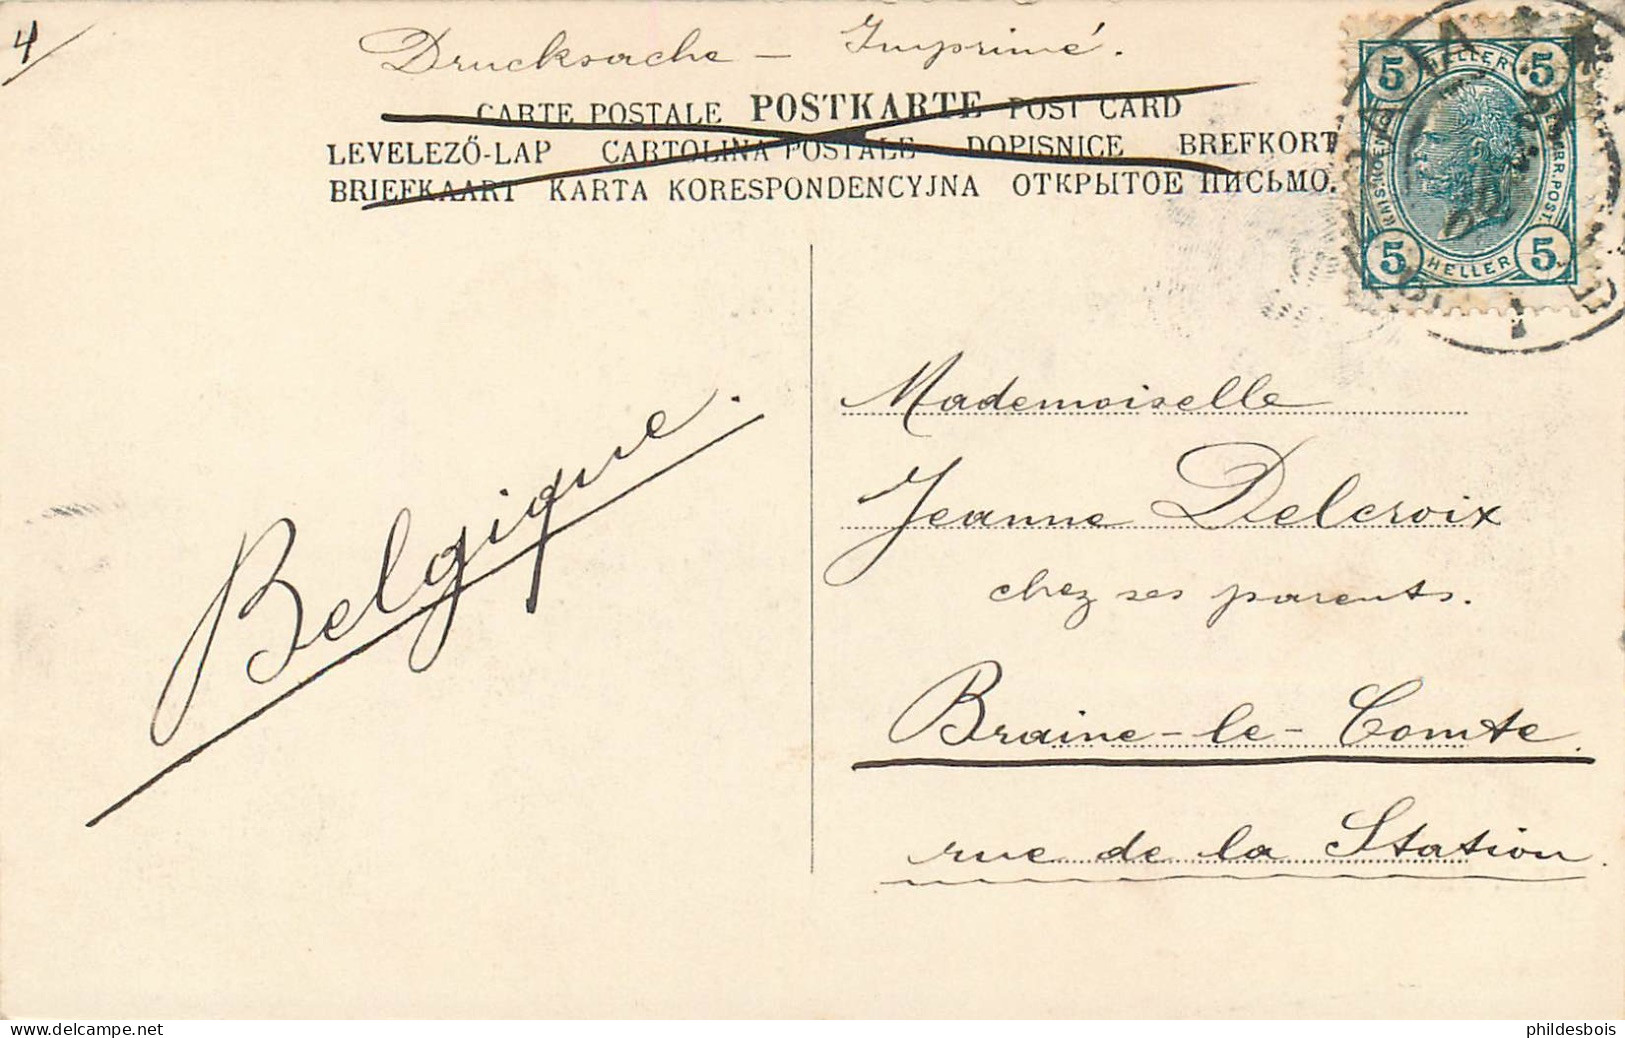 4
Drucksache – Imprimé.
CARTE POSTALE POSTKARTE POST CARD
LEVELEZŐ-LAP CARTOLINA POSTALE DOPISNICE BREFKORT
BRIEFKAART KARTA KORESPONDENCYJNA ОТКРЫТОЕ ПИСЬМО.
5 HELLER 5
5 HELLER 5
Belgique.
Mademoiselle
Jeanne Delcroix
chez ses parents.
Braine-le-Comte.
rue de la Station.
delcampe.net
Website
phildesbois